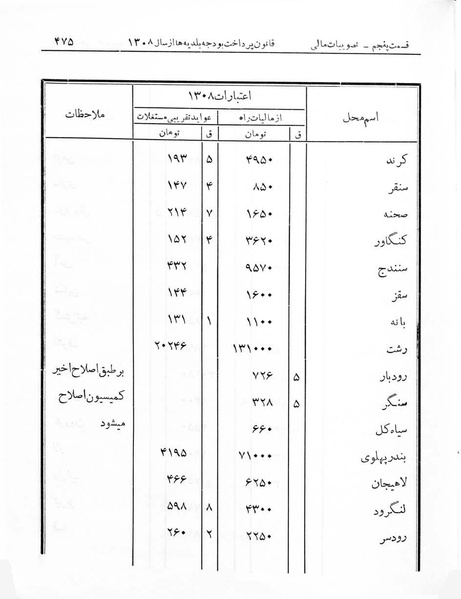 قسمت پنجم - تصویبات مالی قانون پرداخت بودجه بلدیه‌ها از سال ۱۳۰۸ ۴۷۵
اسم محل اعتبارات ۱۳۰۸ ملاحظات
از مالیات راه عواید تقریبی مستغلات
ق تومان ق تومان
کرند ۴۹۵۰ ۵ ۱۹۳
سنقر ۸۵۰ ۴ ۱۴۷
صحنه ۱۶۵۰ ۷ ۲۱۴
کنگاور ۳۶۲۰ ۴ ۱۵۲
سنندج ۹۵۷۰ ۴۳۲
سقز ۱۶۰۰ ۱۴۴
بانه ۱۱۰۰ ۱ ۱۳۱
رشت ۱۳۱۰۰۰ ۲۰۲۴۶
رودبار ۵ ۷۲۶ بر طبق اصلاح اخیر
سنگر ۵ ۳۲۸ کمیسیون اصلاح
سیاه کل ۶۶۰ میشود
بندر پهلوی ۷۱۰۰۰ ۴۱۹۵
لاهیجان ۶۲۵۰ ۴۶۶
لنگرود ۴۳۰۰ ۸ ۵۹۸
رودسر ۲۲۵۰ ۲ ۲۶۰